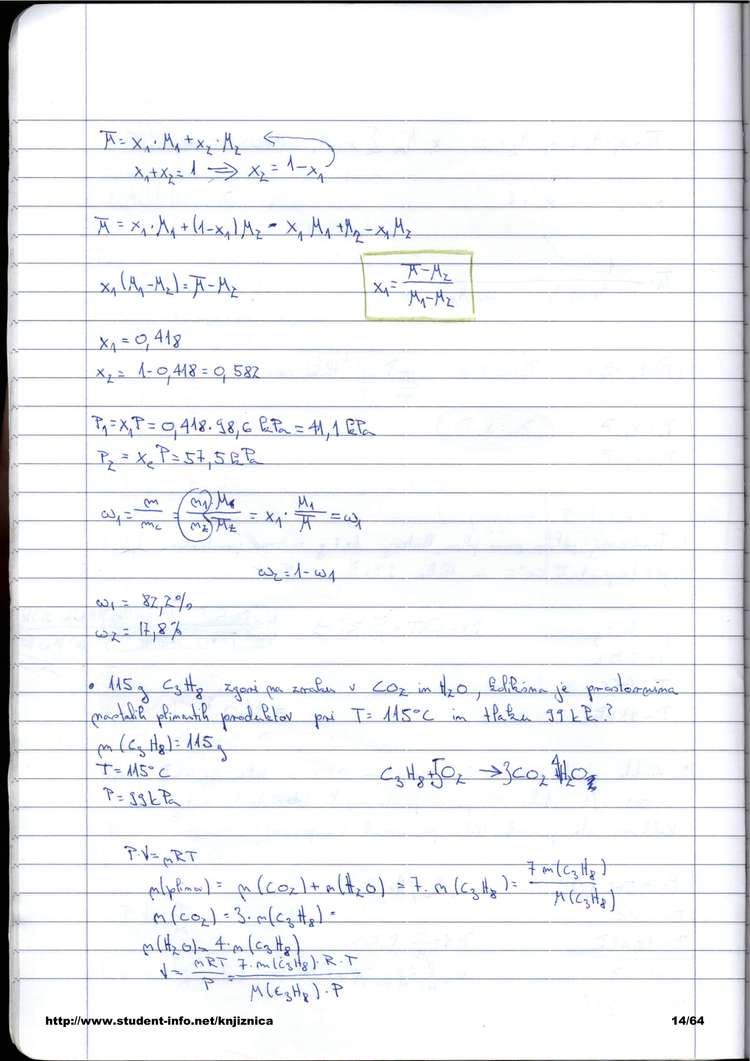 M̄ = x₁·M₁ + x₂·M₂
x₁+x₂=1 ⟹ x₂ = 1-x₁
M̄ = x₁·M₁ + (1-x₁)M₂ = x₁M₁ + M₂ - x₁M₂
x₁(M₁-M₂) = M̄-M₂
x₁ = (M̄-M₂)/(M₁-M₂)
x₁ = 0,418
x₂ = 1-0,418 = 0,582
P₁=x₁P = 0,418·98,6 kPa = 41,1 kPa
P₂ = x₂P = 57,5 kPa
ω₁ = m/mc = n₁·M₁/n₂·M̄₂ = x₁·M₁/M̄ = ω₁
ω₂ = 1-ω₁
ω₁ = 82,2%
ω₂ = 17,8%
• 115 g C₃H₈ zgori na zraku v CO₂ in H₂O, kolikšna je prostornina
nastalih plinastih produktov pri T= 115°C in tlaku 99 kPa?
m(C₃H₈) = 115 g
T = 115°C
P = 99 kPa
C₃H₈+5O₂ → 3CO₂ 4H₂O
P·V = nRT
n(plinov) = n(CO₂) + n(H₂O) = 7·n(C₃H₈) = 7 m(C₃H₈)/M(C₃H₈)
n(CO₂) = 3·n(C₃H₈) =
n(H₂O) = 4·n(C₃H₈)
V = nRT/P = 7·m(C₃H₈)·R·T/M(C₃H₈)·P
http://www.student-info.net/knjiznica
14/64